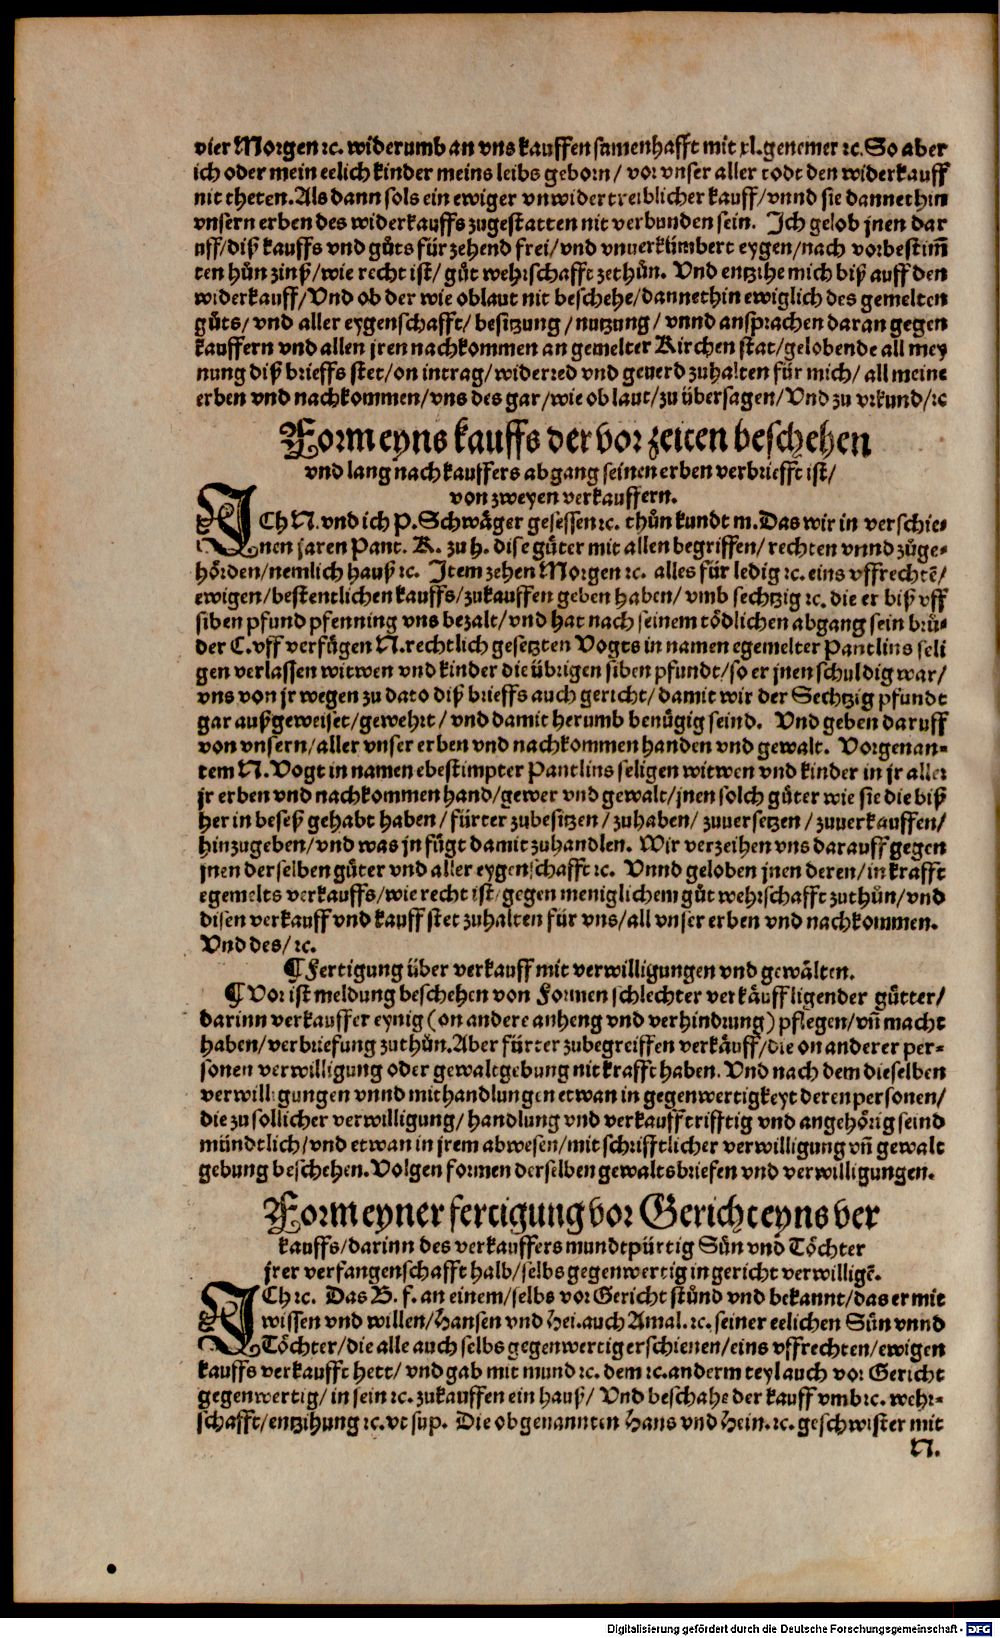 vier Morgen ꝛc. widerumb an vns kauffen samenhafft mit xl. genemer ꝛc. So aber
ich oder mein eelich kinder meins leibs geborn / vor vnser aller todt den widerkauff
nit theten. Als dann sols ein ewiger vnwidertreiblicher kauff / vnnd sie dannethin
vnsern erben des widerkauffs zugestatten nit verbunden sein. Ich gelob jnen dar
uff / diß kauffs vnd gůts für zehend frei / vnd vnuerkümbert eygen / nach vorbestim̄
ten hůn zinß / wie recht ist / gůt wehrschafft zethůn. Vnd entzihe mich biß auff den
widerkauff / Vnd ob der wie oblaut nit beschehe / dannethin ewiglich des gemelten
gůts / vnd aller eygenschafft / besitzung / nutzung / vnnd ansprachen daran gegen
kauffern vnd allen jren nachkommen an gemelter Kirchen stat / gelobende all mey
nung diß brieffs stet / on intrag / widerred vnd geuerd zuhalten für mich / all meine
erben vnd nachkommen / vns des gar / wie ob laut / zu übersagen / Vnd zu vrkund / ꝛc
Form eyns kauffs der vor zeiten beschehen
vnd lang nach kauffers abgang seinen erben verbriefft ist /
von zweyen verkauffern.
ICh N. vnd ich P. Schwäger gesessen ꝛc. thůn kundt m. Das wir in verschie-
nen jaren Pant. K. zu h. dise güter mit allen begriffen / rechten vnnd zůge-
hörden / nemlich hauß ꝛc. Item zehen Morgen ꝛc. alles für ledig ꝛc. eins vffrechtē /
ewigen / bestentlichen kauffs / zukauffen geben haben / vmb sechtzig ꝛc. die er biß vff
siben pfund pfenning vns bezalt / vnd hat nach seinem tödlichen abgang sein brů-
der C. vff verfügen N. rechtlich gesetzten Vogts in namen egemelter Pantlins seli
gen verlassen witwen vnd kinder die übrigen siben pfundt / so er jnen schuldig war /
vns von jr wegen zu dato diß brieffs auch gericht / damit wir der Sechtzig pfundt
gar außgeweiset / gewehrt / vnd damit herumb benügig seind. Vnd geben daruff
von vnsern / aller vnser erben vnd nachkommen handen vnd gewalt. Vorgenan-
tem N. Vogt in namen ebestimpter Pantlins seligen witwen vnd kinder in jr aller
jr erben vnd nachkommen hand / gewer vnd gewalt / jnen solch güter wie sie die biß
her in beseß gehabt haben / fürter zubesitzen / zuhaben / zuuersetzen / zuuerkauffen /
hinzugeben / vnd was jn fügt damit zuhandlen. Wir verzeihen vns darauff gegen
jnen derselben güter vnd aller eygenschafft ꝛc. Vnnd geloben jnen deren / in krafft
egemelts verkauffs / wie recht ist / gegen meniglichem gůt wehrschafft zuthůn / vnd
disen verkauff vnd kauff stet zuhalten für vns / all vnser erben vnd nachkommen.
Vnd des / ꝛc.
¶ Fertigung über verkauff mit verwilligungen vnd gewälten.
¶ Vor ist meldung beschehen von Formen schlechter verkäuffligender gütter /
darinn verkauffer eynig (on andere anheng vnd verhindrung) pflegen / vn̄ macht
haben / verbriefung zuthůn. Aber fürter zubegreiffen verkäuff / die on anderer per-
sonen verwilligung oder gewaltgebung nit krafft haben. Vnd nach dem dieselben
verwilligungen vnnd mithandlungen etwan in gegenwertigkeyt deren personen /
die zu sollicher verwilligung / handlung vnd verkauff trifftig vnd angehörig seind
mündtlich / vnd etwan in jrem abwesen / mit schrifftlicher verwilligung vn̄ gewalt
gebung beschehen. Volgen formen derselben gewaltsbriefen vnd verwilligungen.
Form eyner fertigung vor Gericht eyns ver
kauffs / darinn des verkauffers mundtpürtig Sün vnd Töchter
jrer verfangenschafft halb / selbs gegenwertig in gericht verwilligē.
ICh ꝛc. Das B. f. an einem / selbs vor Gericht stůnd vnd bekannt / das er mit
wissen vnd willen / Hansen vnd Hei. auch Amal. ꝛc. seiner eelichen Sün vnnd
Töchter / die alle auch selbs gegenwertig erschienen / eins vffrechten / ewigen
kauffs verkaufft hett / vnd gab mit mund ꝛc. dem ꝛc. anderm teyl auch vor Gericht
gegenwertig / in sein ꝛc. zukauffen ein hauß / Vnd beschahe der kauff vmb ꝛc. wehr-
schafft / entzihung ꝛc. vt sup. Die obgenannten Hans vnd Hein. ꝛc. geschwister mit
N.
Digitalisierung gefördert durch die Deutsche Forschungsgemeinschaft - DFG